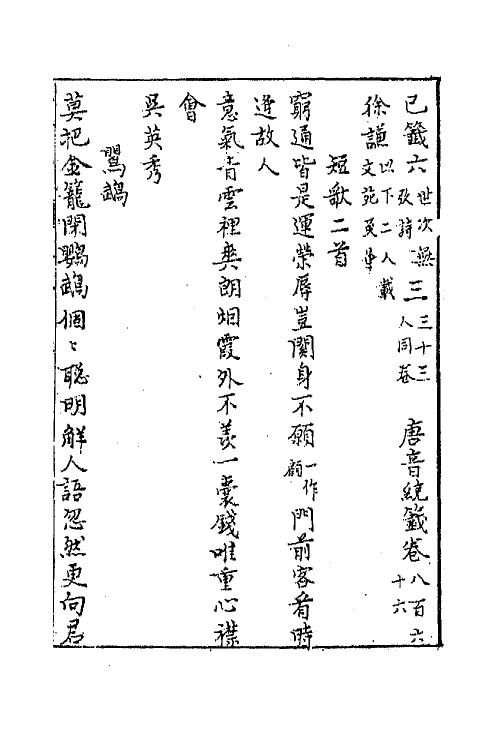 已籤六世次無攷詩三三十三人同卷 唐音統籤卷八百六十六
徐謙以下二人載文苑英華
短歌二首
窮通皆是運榮辱豈關身不願一作顧門前客看時
逄故人
意氣青雲裡爽朗烟霞外不羡一囊錢唯重心襟
會
吳英秀
鸎鵡
莫把金籠閉鸚鵡個〻聰明觧人語忽然更向君